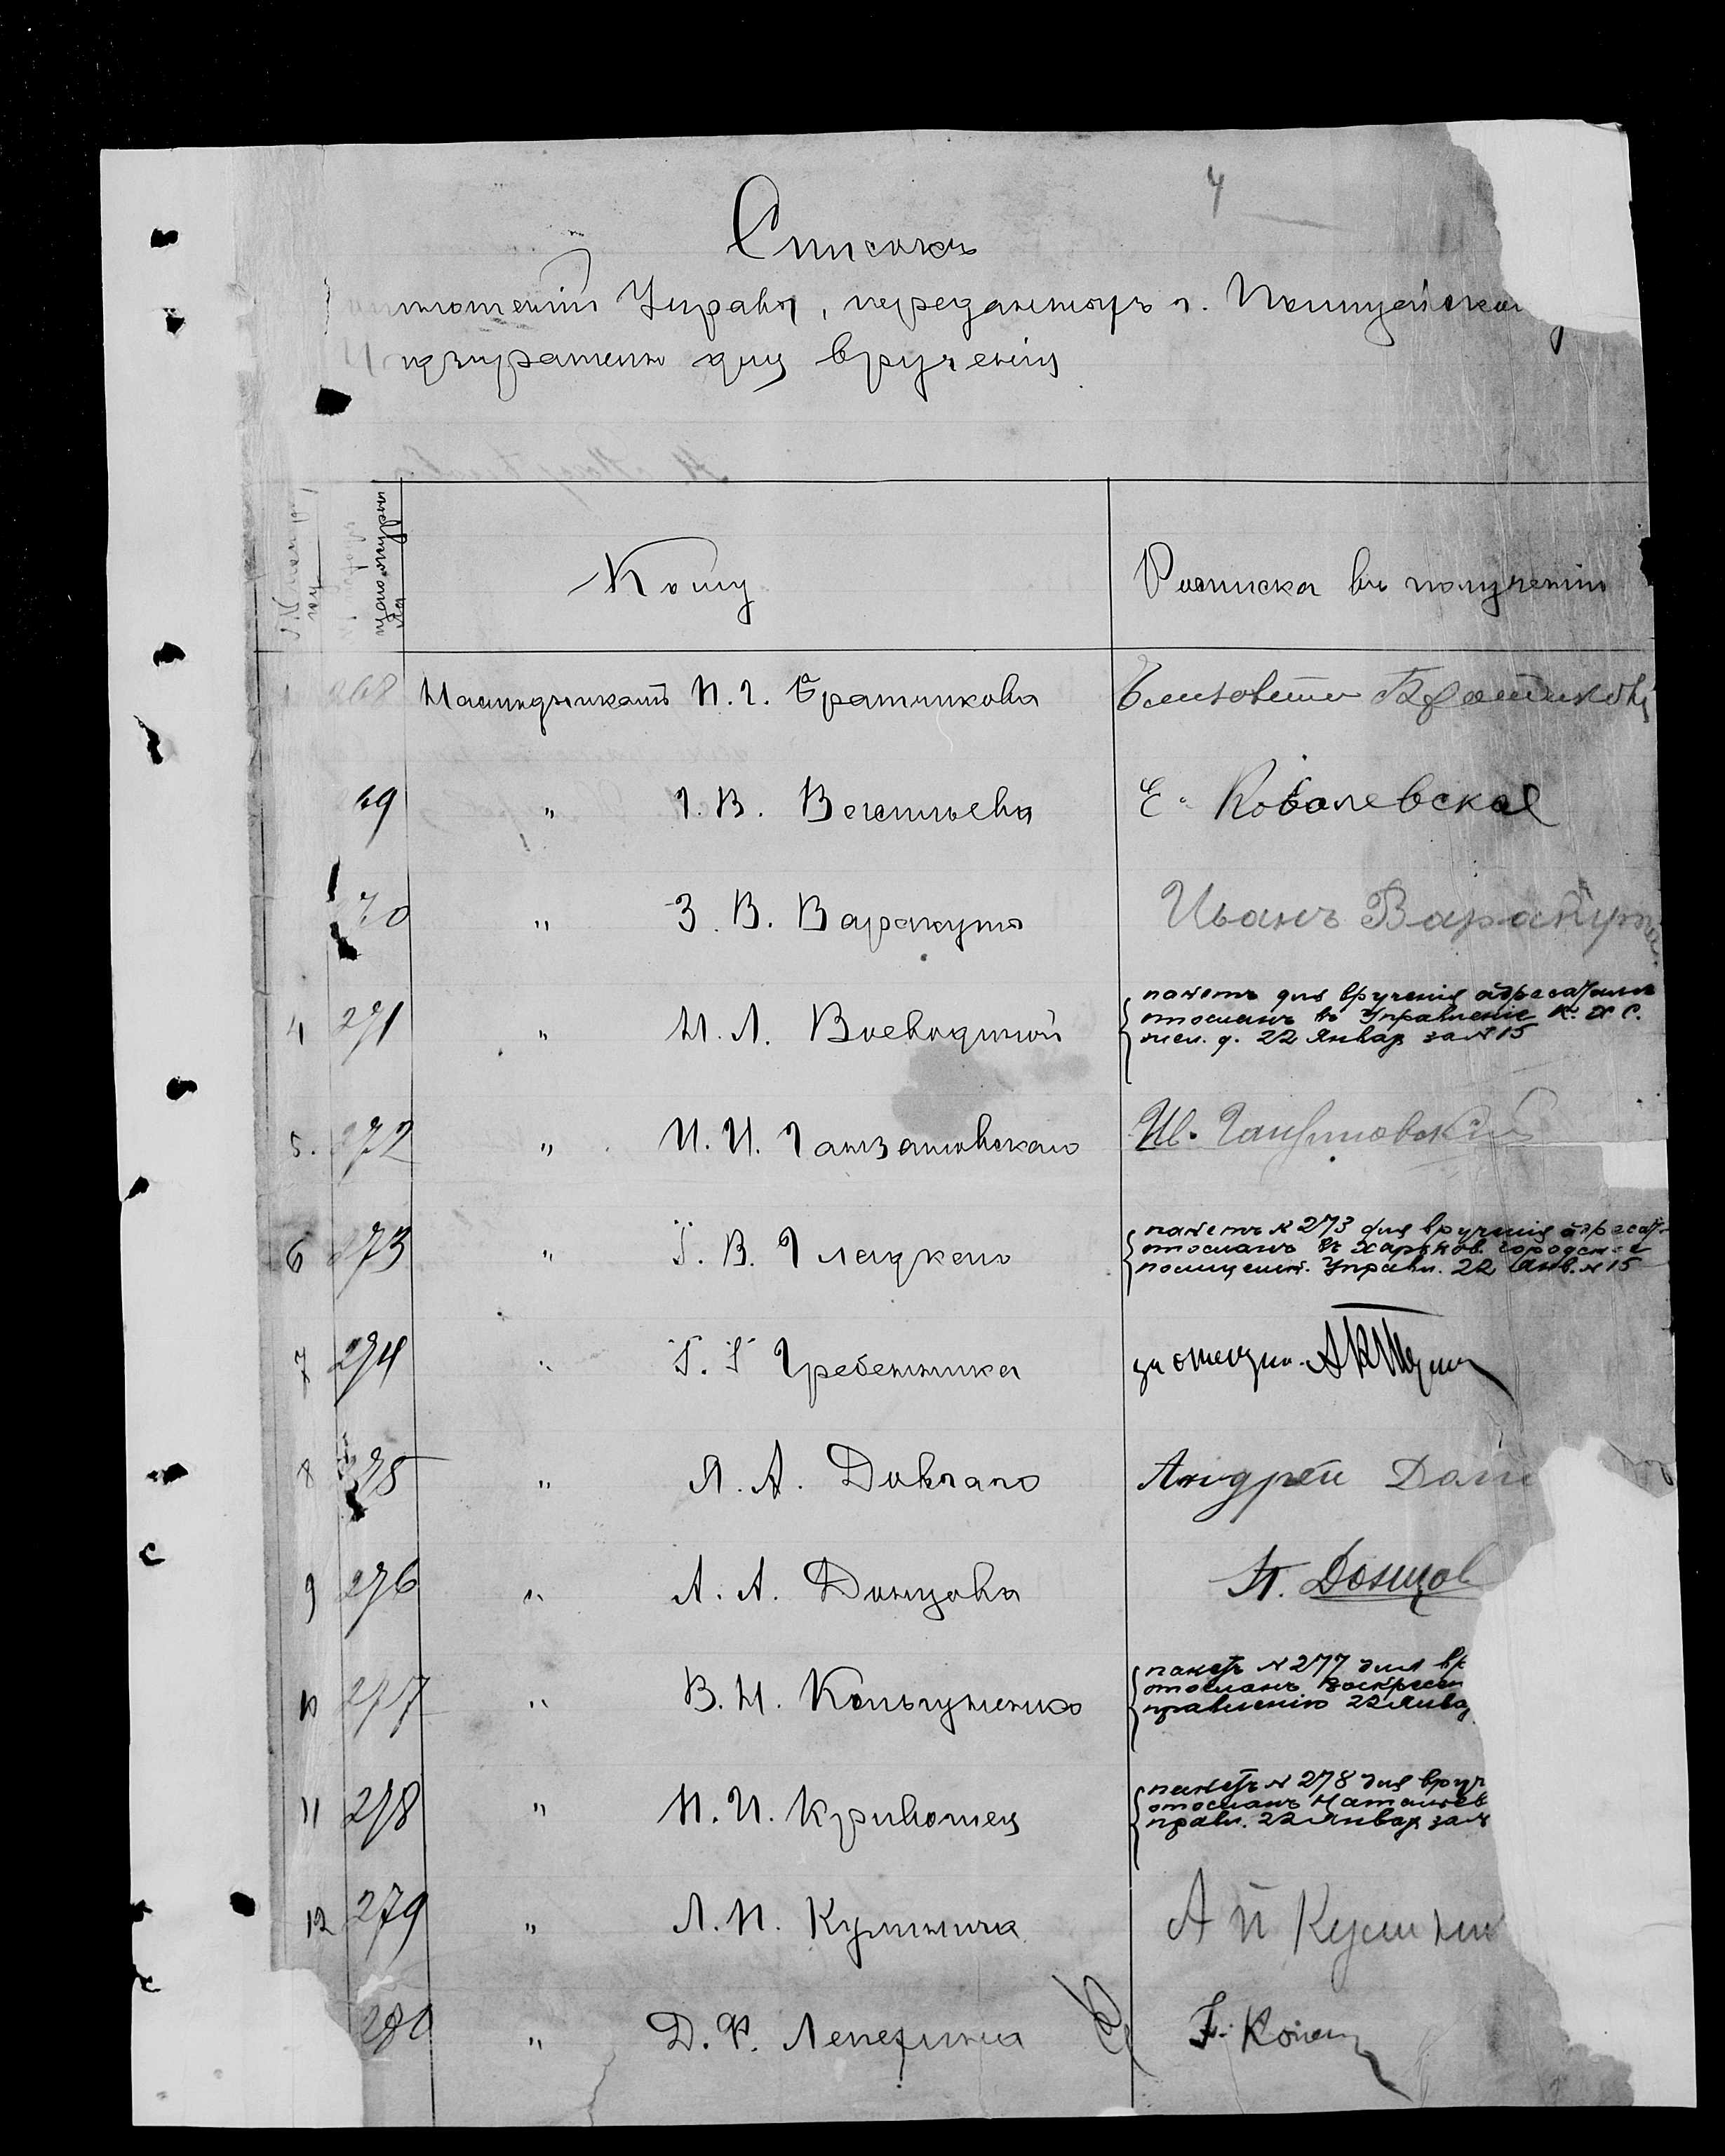 4
Списокъ
отношеній Управы, переданныхъ г. Полицейско
Надзирателю для врученія
Кому
Росписка въ полученіи
268 Наслѣдникамъ П. Г. Братчикова
69 " Г. В. Васильева Е. Ковалевская
70 " З. В. Варакуты Иванъ Варакута
4 271 " Н. Л. Воеводиной
пакетъ для врученія адресатамъ
отосланъ въ Управленіе К. Х. С.
жел. д. 22 Январ за № 15
5. 272 " И. И. Ганзановскаго Ив.
6 273 " Г. В. Гладкаго
пакетъ № 273 для врученія адресат
отосланъ въ Харьков. городск
полицейск. Управл. 22 Янв. № 15
7 274 " Г. Г. Гребенника за опекуна
8 275 " Я. А. Довгаго Андрей
9 276 " А. А. Донцова П. Донцов
10 277 " В. Н. Кольчуженко
пакетъ № 277 для вр
отосланъ Воскресен
правленію 22 Январ
11 278 " П. И. Кривошея
пакетъ № 278 для вруч
отосланъ Наталіев
правл. 22 Январ за №
12 279 " Л. П. Кулинича А П Кулинич
280 " Д. Ф. Лепехина